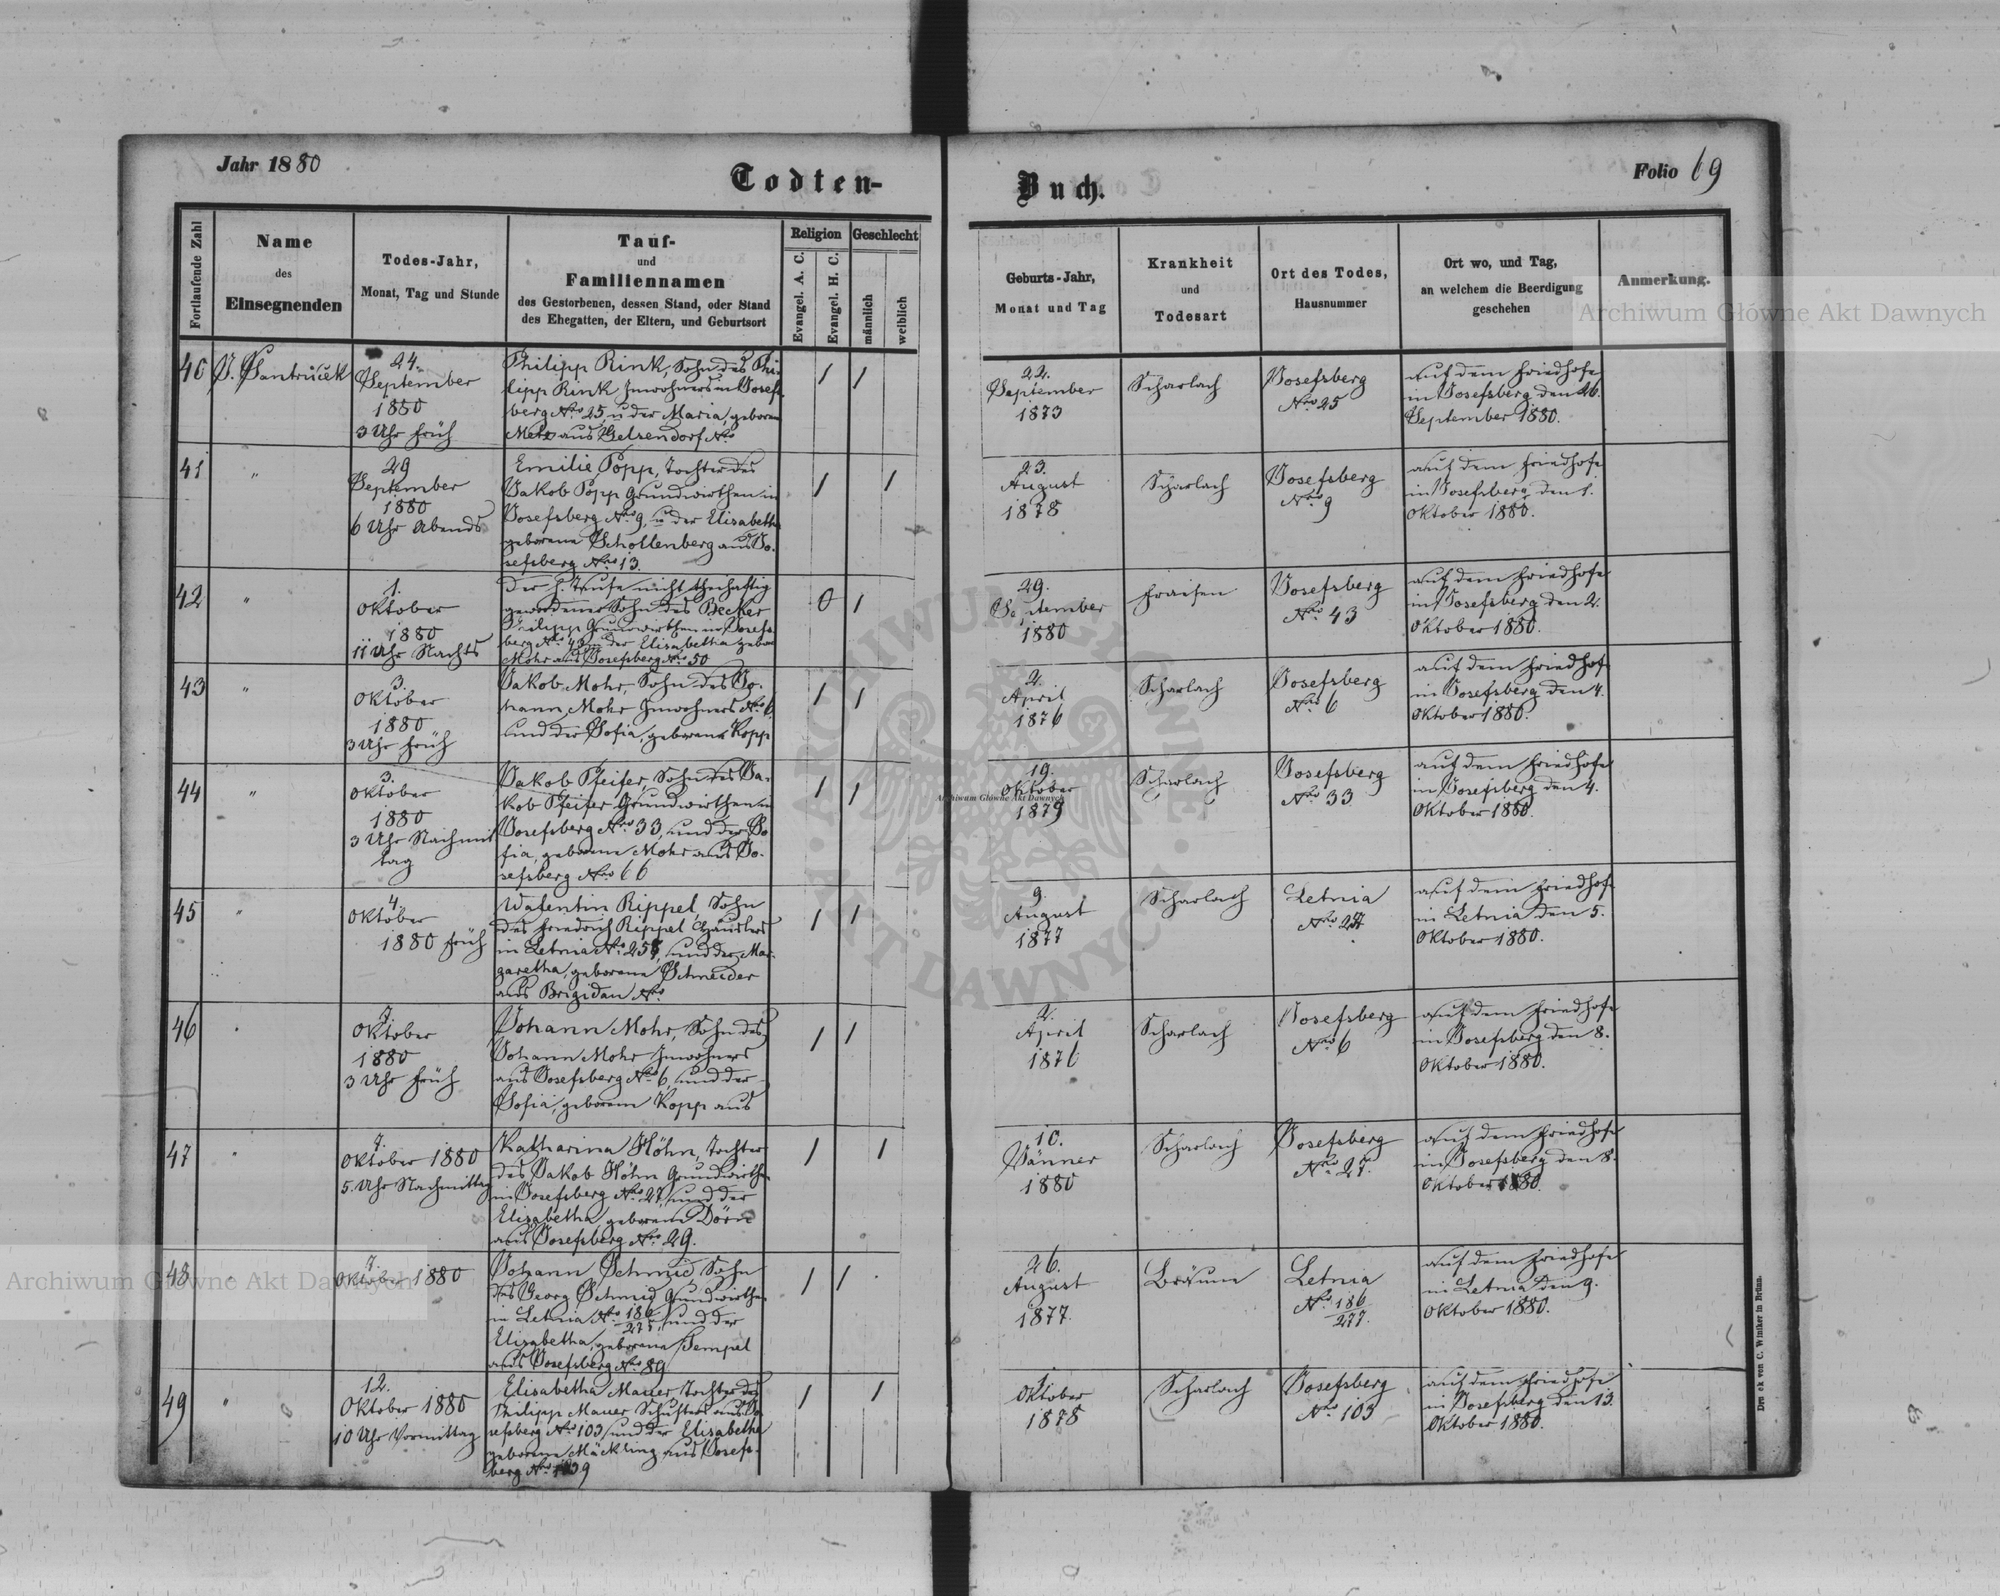 Jahr 1880
Todten-
Buch.
Folio 69
Fortlaufende Zahl
Name
des
Einsegnenden
Todes-Jahr,
Monat, Tag und Stunde
Tauf-
und
Familiennamen
des Gestorbenen, dessen Stand, oder Stand
des Ehegatten, der Eltern, und Geburtsort
Religion
Evangel. A. C.
Evangel. H. C.
Geschlecht
männlich
weiblich
Geburts-Jahr,
Monat und Tag
Krankheit
und
Todesart
Ort des Todes,
Hausnummer
Ort wo, und Tag,
an welchem die Beerdigung
geschehen
Anmerkung.
40
J. Jantruček
24.
September
1880
3 Uhr früh
Philipp Rink, Sohn des Phi-
lipp Rink Inwohners in Josefs-
berg Nro 25, u der Maria, geborene
Metz aus Gelsendorf Nro
/ /
22.
September
1873
Scharlach
Josefsberg
Nro 25
auf dem Friedhofe
in Josefsberg den 26.
September 1880.
41
"
29
September
1880
6 Uhr Abends
Emilie Popp, Tochter des
Jakob Popp Grundwirthen in
Josefsberg Nro 9, u der Elisabetha
geborene Schollenberg aus Jo-
sefsberg Nro 13.
/ /
23.
August
1878
Scharlach
Josefsberg
Nro 9
auf dem Friedhofe
in Josefsberg den 1.
Oktober 1880.
42
"
1.
Oktober
1880
11 Uhr Nachts
Der h. Taufe nicht theilhaftig
gewordener Sohn des Becker
Philipp Grundwirthen in Josefs-
berg Nro 43, u der Elisabetha gebor.
Mohr aus Josefsberg Nro 50
0 /
29.
September
1880
Fraisen
Josefsberg
Nro 43
auf dem Friedhofe
in Josefsberg den 2.
Oktober 1880.
43
"
3.
Oktober
1880
3 Uhr früh
Jakob Mohr, Sohn des Jo-
hann Mohr Inwohners Nro 6,
und der Sofia, geborene Kopp
/ /
2.
April
1876
Scharlach
Josefsberg
Nro 6
auf dem Friedhofe
in Josefsberg den 4.
Oktober 1880.
44
"
3.
Oktober
1880
3 Uhr Nachmit
tag
Jakob Pfeifer, Sohn des Ja-
kob Pfeifer Grundwirthen in
Josefsberg Nro 33, und der So
fia, geborene Mohr aus Jo-
sefsberg Nro 66
/ /
19.
Oktober
1879
Scharlach
Josefsberg
Nro 33
auf dem Friedhofe
in Josefsberg den 4.
Oktober 1880.
45
"
4.
Oktober
1880 früh
Walentin Rippel, Sohn
des Friedrich Rippel Häuslers
in Letnia Nro 257, und der Mar-
garetha, geborene Schneider
aus Brigidau Nro
/ /
9.
August
1877
Scharlach
Letnia
auf dem Friedhofe
in Letnia den 5.
Oktober 1880.
46
"
7.
Oktober
1880
3 Uhr früh
Johann Mohr, Sohn des
Johann Mohr Inwohners
aus Josefsberg Nro 6, und der
Sofia, geborene Kopp aus
/ /
2.
April
1876
Scharlach
Josefsberg
Nro 6
auf dem Friedhofe
in Josefsberg den 8.
Oktober 1880.
47
"
7.
Oktober 1880
5. Uhr Nachmittag
Katharina Höhn, Tochter
des Jakob Höhn Grundwirthen
in Josefsberg Nro 27, und der
Elisabetha geborene Dörr
aus Josefsberg Nro 29.
/ /
10.
Jänner
1880
Scharlach
Josefsberg
Nro 27.
auf dem Friedhofe
in Josefsberg den 8.
Oktober 1880.
48
"
7.
Oktober 1880
Johann Schmid, Sohn
des Georg Schmid Grundwirthen
in Letnia Nro 186/277, und der
Elisabetha, geborene Hempel
aus Josefsberg Nro 89
/ /
26.
August
1877.
Bräune
Letnia
Nro 186/277.
auf dem Friedhofe
in Letnia den 9.
Oktober 1880.
49
"
12.
Oktober 1880
10 Uhr Vormittag
Elisabetha Mauer Tochter des
Philipp Mauer Schusters aus Jo
sefsberg Nro 103, und der Elisabetha
geborene Mäckling aus Josefs-
berg Nro 139
/ /
1.
Oktober
1878
Scharlach
Josefsberg
Nro 103
auf dem Friedhofe
in Josefsberg den 13.
Oktober 1880.
Druck von C. Winiker in Brünn.
Archiwum Główne Akt Dawnych
Archiwum Główne Akt Dawnych
Archiwum Główne Akt Dawnych
ARCHIWUM GŁÓWNE · AKT DAWNYCH ·